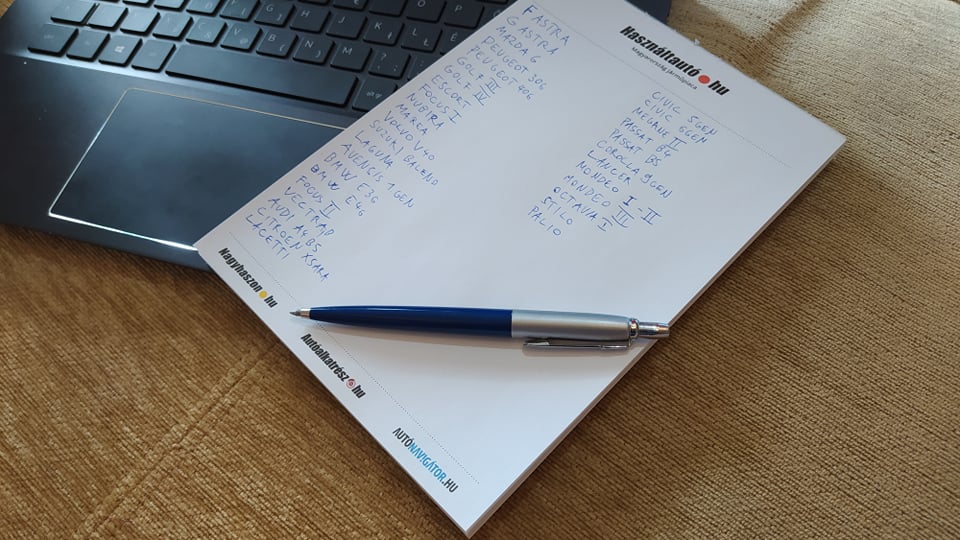 Használtautó.hu
Magyarország járműpiaca
F ASTRA
G ASTRA
MAZDA 6
PEUGEOT 306
PEUGEOT 406
GOLF III
GOLF IV
ESCORT
FOCUS I
NUBIRA
MAREA
VOLVO V40
SUZUKI BALENO
LAGUNA
AVENSIS 1GEN
BMW E36
BMW E46
FOCUS II
VECTRA B
AUDI A4 B5
CITROEN XSARA
LACETTI
CIVIC 5GEN
CIVIC 6GEN
MEGANE II
PASSAT B4
PASSAT B5
COROLLA 9GEN
LANCER
MONDEO I-II
MONDEO III
OCTAVIA I
STILO
PALIO
Nagyhaszon.hu
Autóalkatrész.hu
AUTÓNAVIGÁTOR.HU